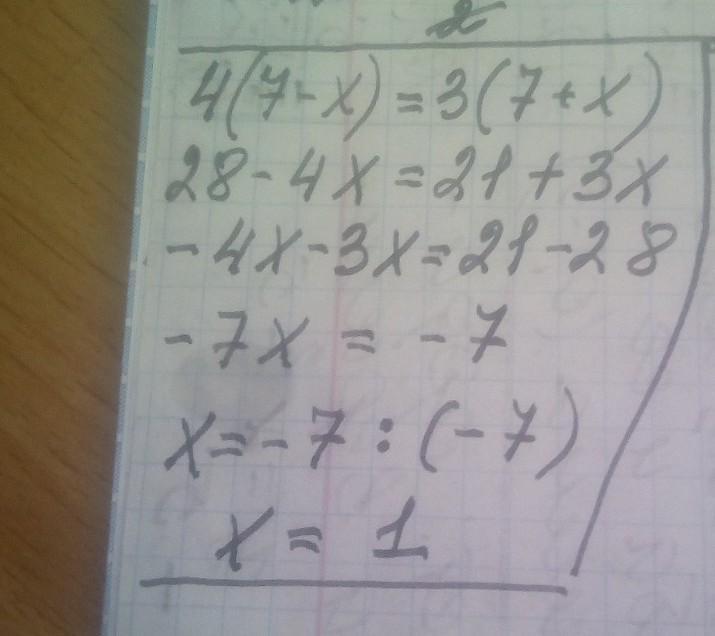 4(7-x)=3(7+x)
28-4x=21+3x
-4x-3x=21-28
-7x = -7
x=-7:(-7)
x = 1